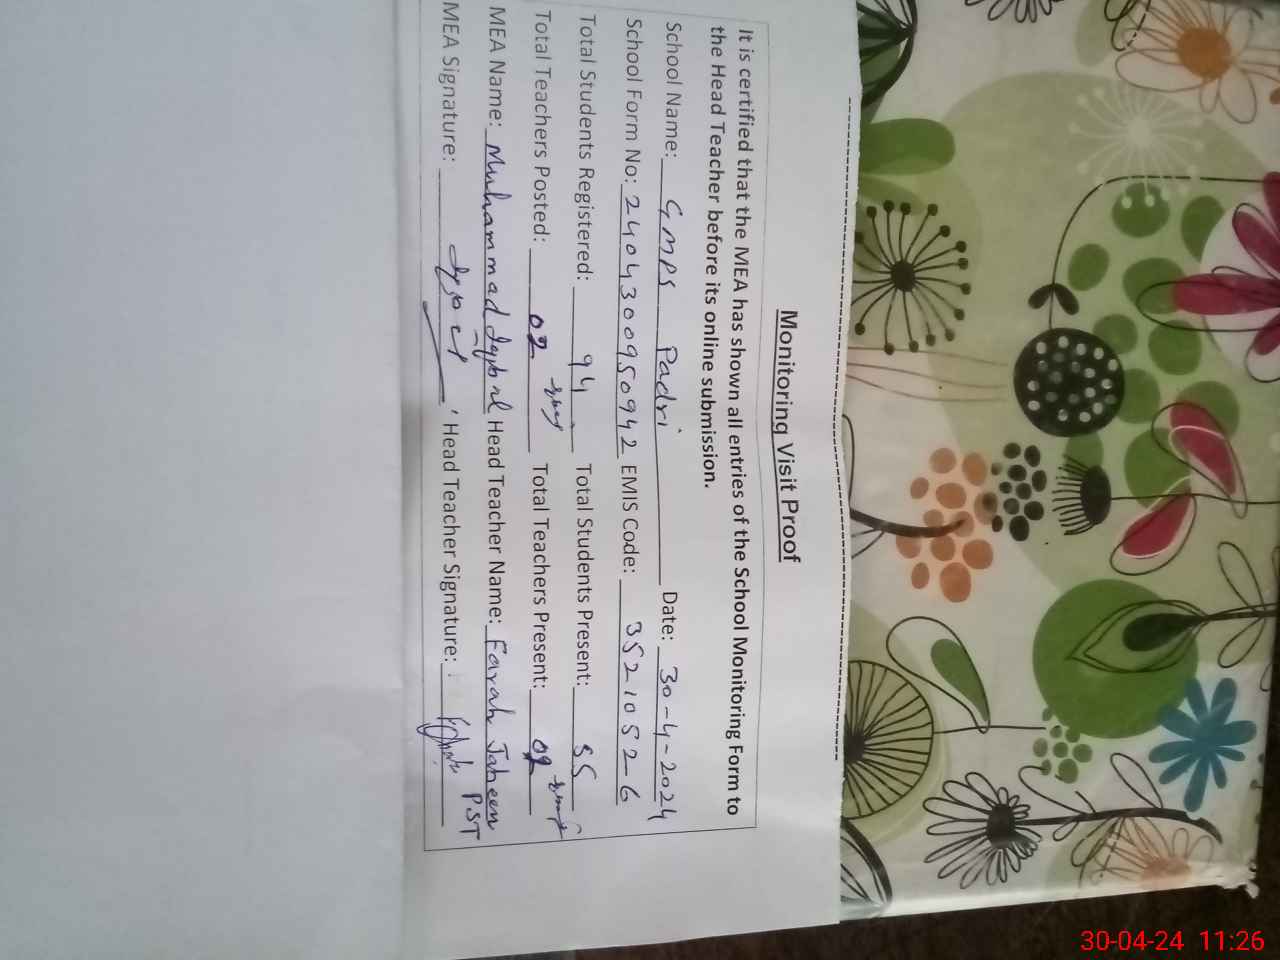 Monitoring Visit Proof
It is certified that the MEA has shown all entries of the School Monitoring Form to
the Head Teacher before its online submission.
School Name: GMPS Padri Date: 30-4-2024
School Form No: 2404300950942 EMIS Code: 35210526
Total Students Registered: 94 Total Students Present: 55
Total Teachers Posted: 02 Total Teachers Present: 02
MEA Name: Muhammad Iqbal Head Teacher Name: Farah Jabeen
MEA Signature: Head Teacher Signature: PST
30-04-24 11:26